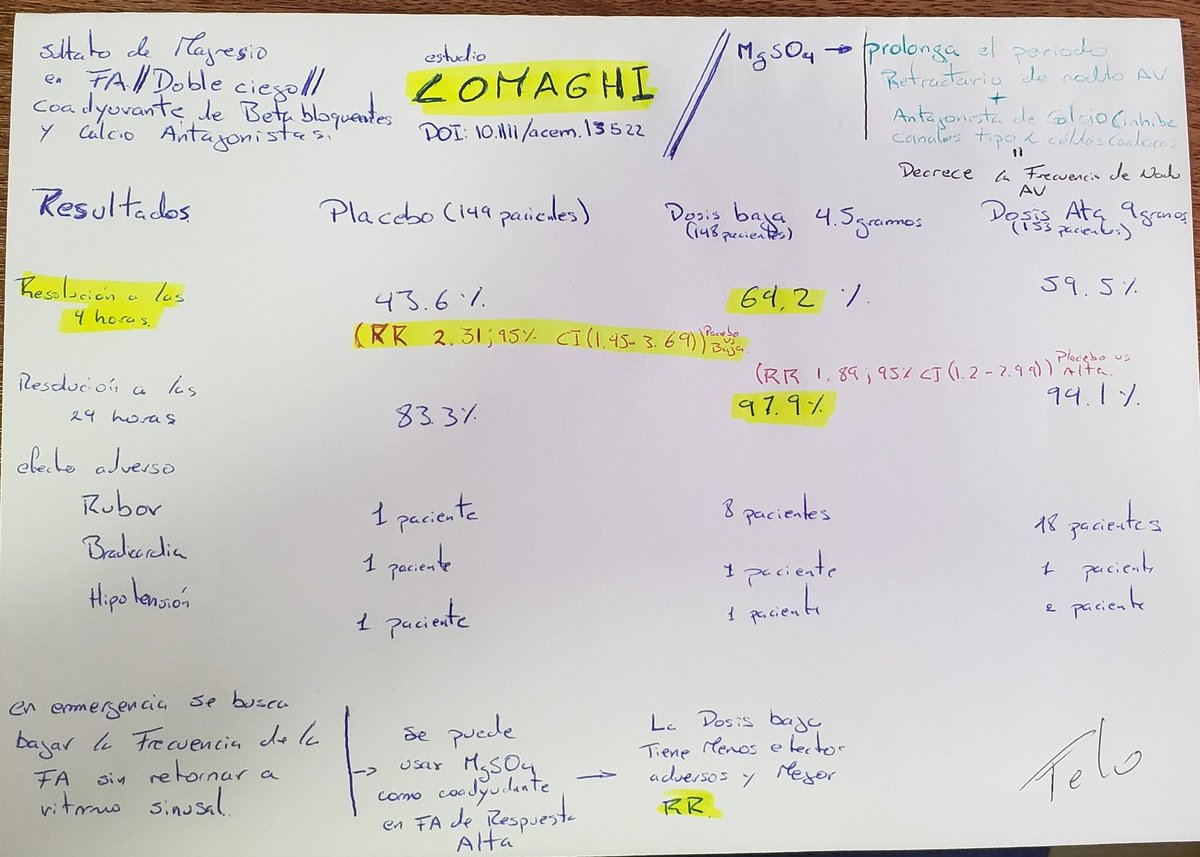 sulfato de Magnesio
en FA // Doble ciego //
coadyuvante de Betabloquentes
y Calcio Antagonistas.
estudio
LOMAGHI
DOI: 10.1111/acem.13522
MgSO4 → prolonga el periodo
Refractario de nodulo AV
+
Antagonista de Calcio (inhibe
canales tipo L células cardiacas
"
Decrece la Frecuencia de Nodo
AV
Resultados Placebo (149 pacientes) Dosis baja 4.5 gramos Dosis Alta 9 gramos
(148 pacientes) (153 pacientes)
Resolución a las
4 horas. 43.6 % 64.2 % 59.5 %
(RR 2.31; 95% CI (1.45-3.69)) Placebo vs Baja.
(RR 1.89; 95% CI (1.2-2.99)) Placebo vs Alta.
Resolución a las
24 horas 83.3% 97.9% 94.1%
efecto adverso
Rubor 1 paciente 8 pacientes 18 pacientes
Bradicardia 1 paciente 1 paciente 1 paciente
Hipotensión 1 paciente 1 paciente 2 paciente
en emmergencia se busca
bajar la Frecuencia de la
FA sin retornar a
ritmo sinusal.
→ se puede
usar MgSO4
como coadyudante
en FA de Respuesta
Alta
→ La Dosis baja
Tiene Menos efectos
adversos y Mejor
RR.
Telo